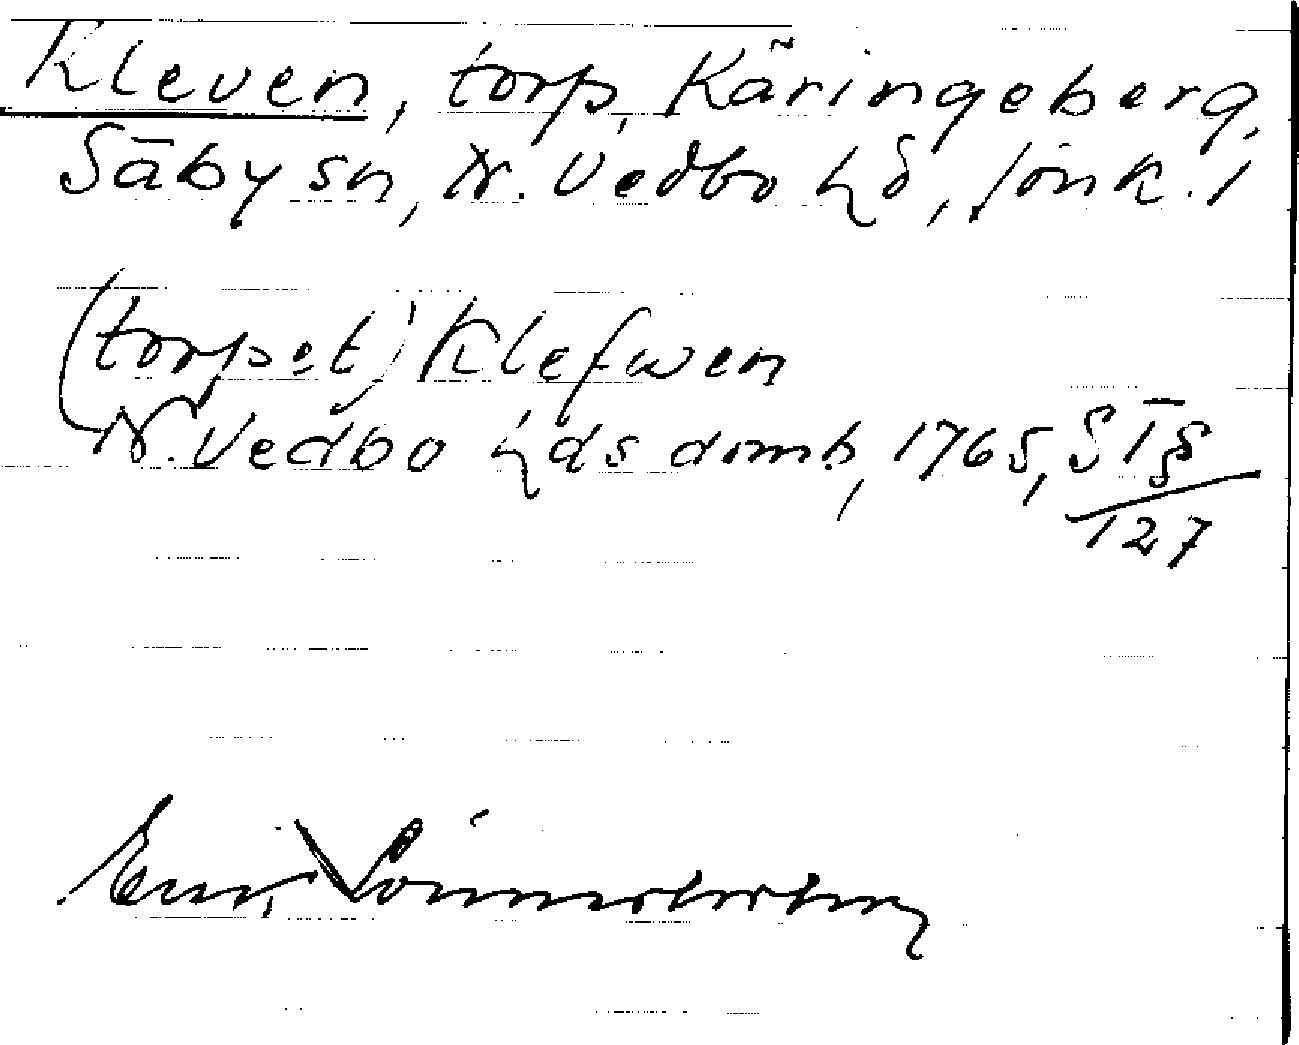 Kleven, torp, Käringeberg,
Säby sn, N. Vedbo hd, Jönk. l
(torpet) Klefwen
N. Vedbo hds domb, 1765, S T §
127